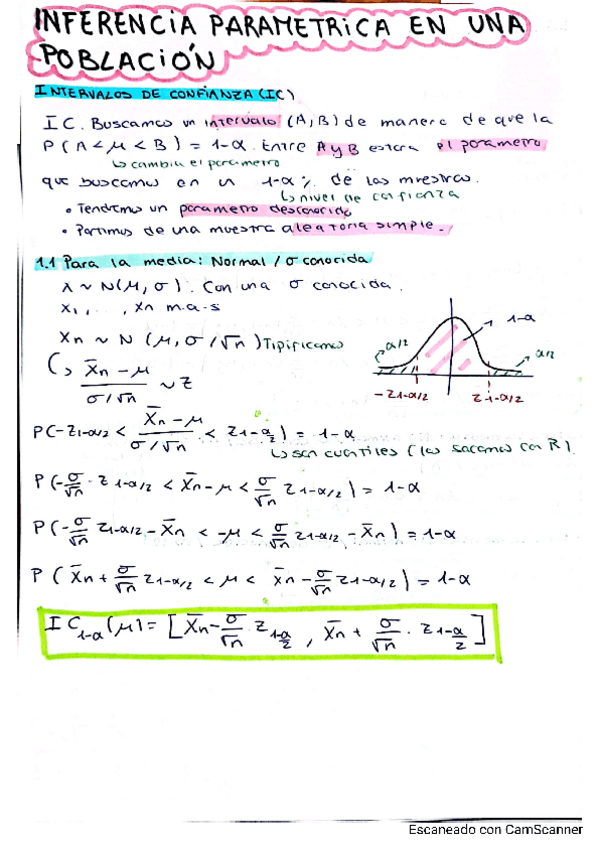 INFERENCIA PARAMETRICA EN UNA
POBLACIÓN
INTERVALOS DE CONFIANZA (IC)
IC. Buscamos un intervalo (A,B) de manera de que la
P(A<μ<B) = 1-α. Entre A y B estara el parametro
↳ cambia el parametro
que buscamos en un 1-α % de las muestras.
↳ nivel de confianza
• Tendremos un parametro desconocido
• Partimos de una muestra aleatoria simple.
1.1 Para la media: Normal / σ conocida
X ~ N(μ, σ). Con una σ conocida.
x1, . . . , xn m.a.s
X̄n ~ N (μ, σ/√n) Tipificamos
↳ (X̄n - μ)/(σ/√n) ~ Z
1-α
α/2
α/2
-Z1-α/2
Z1-α/2
P(-Z1-α/2 < (X̄n - μ)/(σ/√n) < Z1-α/2) = 1-α
↳ son cuantiles (los sacamos con R).
P(-σ/√n · Z1-α/2 < X̄n - μ < σ/√n Z1-α/2) = 1-α
P(-σ/√n Z1-α/2 - X̄n < -μ < σ/√n Z1-α/2 - X̄n) = 1-α
P(X̄n + σ/√n Z1-α/2 < μ < X̄n - σ/√n Z1-α/2) = 1-α
IC1-α(μ) = [X̄n - σ/√n · Z1-α/2 , X̄n + σ/√n · Z1-α/2]
Escaneado con CamScanner